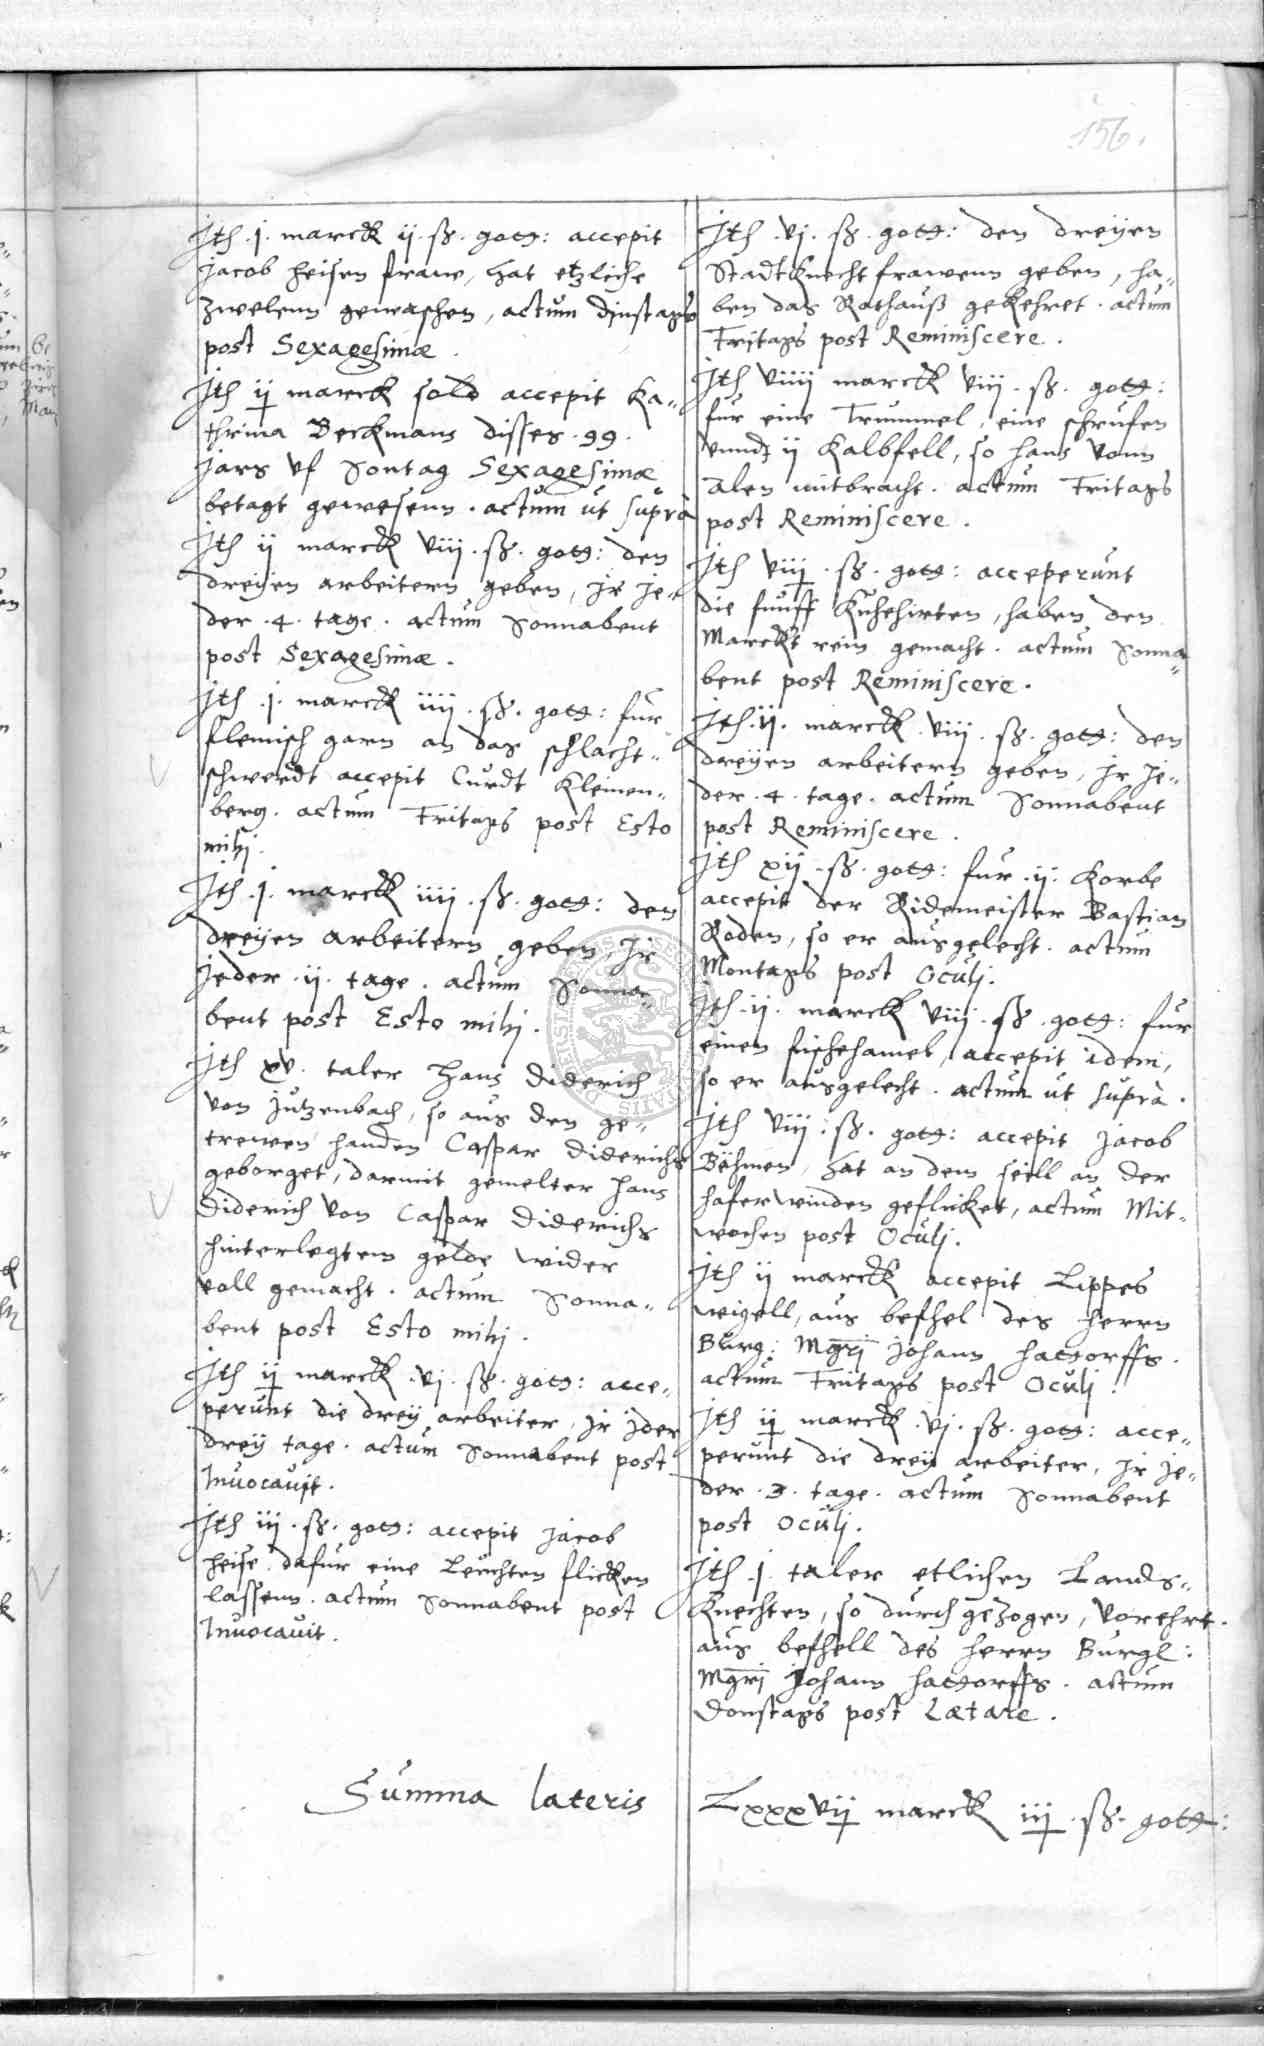 156.
Ith .j. marck ij. ß. gottg: accepit
Jacob heisen fraw, hat etzliche
zwelenn gewaschen, actum dinstags
post Sexagesimæ.
Ith ij marck sold accepit Ka„
thrina Beckmans disses .99.
Jars vf Sontag Sexagesimæ
betagt gewesenn. actum ut supra
Ith ij marck viij. ß. gottg: den
dreyen arbeitern geben, jr je„
der .4. tage. actum Sonnabent
post Sexagesimæ.
Ith .j. marck iiij. ß. gottg: fur
flemisch garn an das schlacht„
schwerdt accepit Curdt Kleinen„
berg. actum Fritags post Esto
mihj.
Ith .j. marck iiij. ß. gottg: den
dreyen arbeitern geben, jr
jeder .ij. tage. actum Sonna„
bent post Esto mihj.
Ith xv. taler Hans Diderich
von Jutzenbach, so aus den ge„
trewen handen Caspar Diderichs
geborget, darmit gemelter hans
Diderich von Caspar Diderichs
hinterlegtem gelde wider
voll gemacht. actum Sonna„
bent post Esto mihj.
Ith ij marck .vj. ß. gottg: acce„
perunt die drey arbeiter, jr jder
drey tage. actum Sonnabent post
Invocauit.
Ith iij. ß. gottg: accepit Jacob
heise. dafur eine Leuchten flicken
lassenn. actum Sonnabent post
Invocauit.
Summa lateris
Ith .vj. ß. gottg: den dreyen
Stadtknecht frawenn geben, ha„
ben das Rathauß gekehret. actum
Fritags post Reminiscere.
Ith viiij marck viij. ß. gottg:
fur eine Trummel, eine schrufen
vnndt ij Kalbfell, so hans vonn
Alen mitbracht. actum Fritags
post Reminiscere.
Ith viij. ß. gottg: acceperunt
die funff Kuhehirten, haben den
Marckt rein gemacht. actum Sonna„
bent post Reminiscere.
Ith .ij. marck .viij. ß. gottg: den
dreyen arbeitern geben, jr je„
der .4. tage. actum Sonnabent
post Reminiscere.
Ith xij. ß. gottg: fur .ij. Korbe
accepit der Ridemeister Bastian
Roden, so er ausgelecht. actum
Montags post Oculj.
Ith .ij. marck viij. ß. gottg: fur
einen fischehamel, accepit idem,
so er ausgelecht. actum ut supra.
Ith viij. ß. gottg: accepit Jacob
Böhmen, hat an dem seill an der
haferwinden geflicket, actum Mit„
wochen post Oculj.
Ith ij marck accepit Lippes
weigell, aus befhel des herrn
Burg: Mgrj Johann hattorffs.
actum Fritags post Oculj.
Ith ij marck .vj. ß. gottg: acce„
perunt die drey arbeiter, jr je„
der .3. tage. actum Sonnabent
post Oculj.
Ith .j. taler etlichen Lands„
knechten, so durch gezogen, vorehrt.
aus befhell des herrn Burgl:
Mgrj Johann hattorffs. actum
Donstags post Lætare.
Lxxxvij marck iij. ß. gottg: